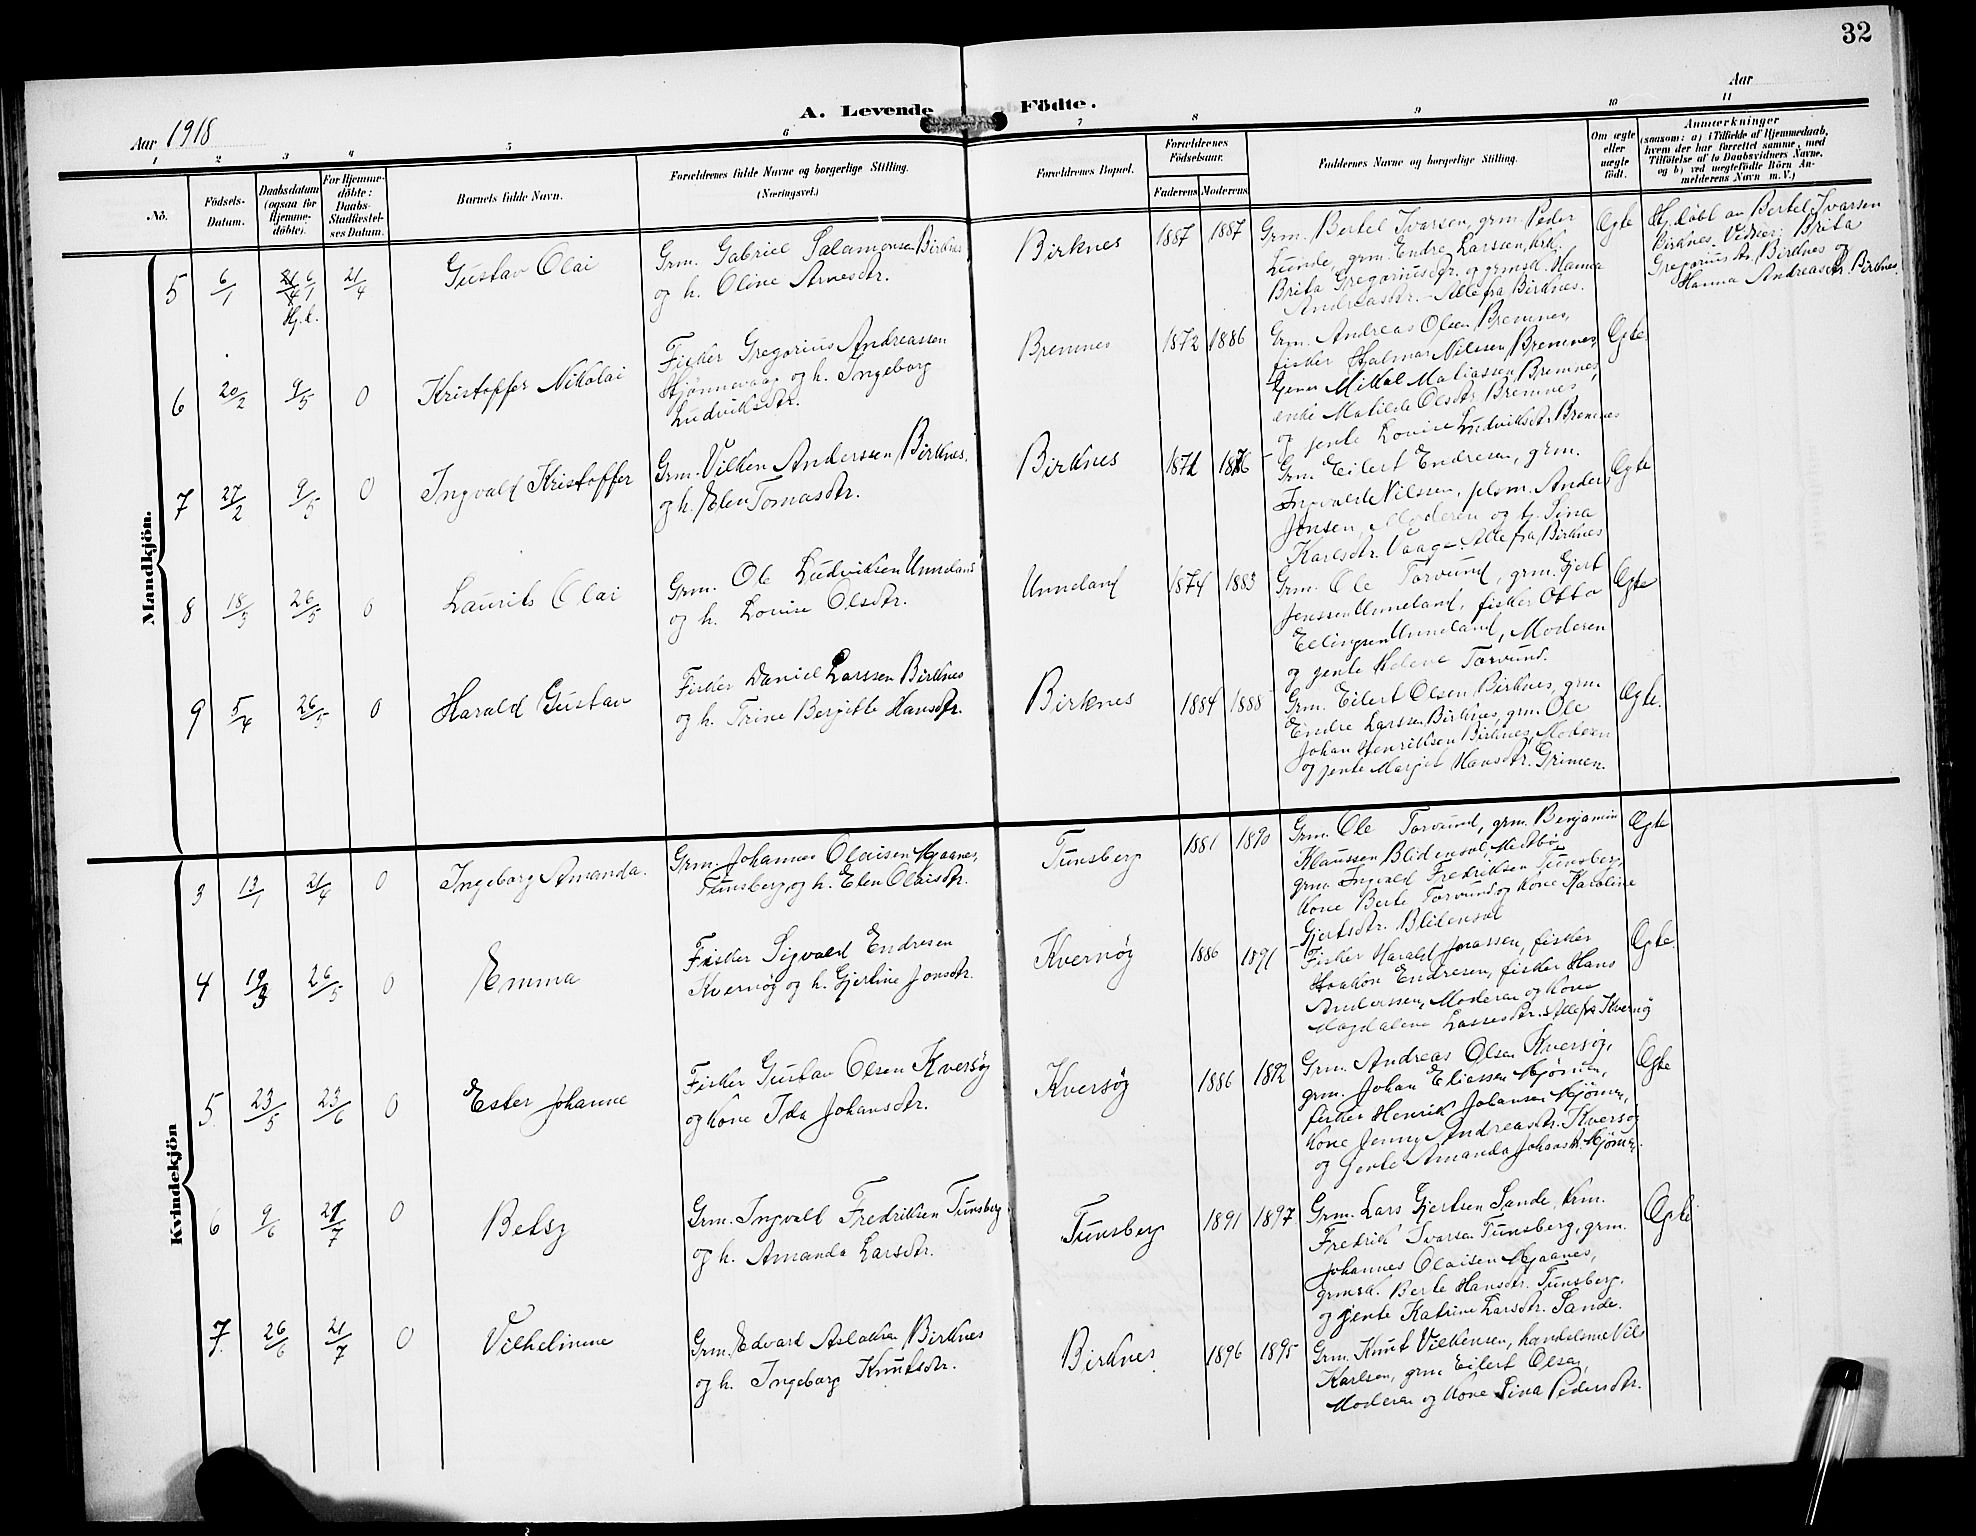 32
A. Levende Födte.
Aar 1918
Aar
1 2 3 4 5 6 7 8 9 10 11
No.
Födsels-Datum.
Daabsdatum (ogsaa for Hjemmedöbte).
For Hjemmedöbte: Daabs-Stadfæstelses Datum.
Barnets fulde Navn.
Forældrenes fulde Navne og borgerlige Stilling. (Næringsvei.)
Forældrenes Bopæl.
Forældrenes Födselsaar.
Faderens Moderens
Faddernes Navne og borgerlige Stilling.
Om ægte eller uægte födt.
Anmærkninger
(saasom: a) i Tilfælde af Hjemmedaab, hvem der har forrettet samme, med Tilföielse af to Daabsvidners Navne, og b) ved uægtefödte Börn Anmelderens Navn m. V.)
Mandkjön.
5 6/1 21/4 6/1 Hj.d. 21/4
Gustav Olai
Grm. Gabriel Salamonsen Birknes
og h. Oline Arnesdtr.
Birknes
1887 1887
Grm. Bertel Ivarsen, grm. Peder
Lunde, grm. Endre Larssen, krk.
Brita Gregoriusdtr. og grmsk. Hanna
Andreasdtr. - Alle fra Birknes.
Ægte
Hj.døbt av Bertel Ivarsen
Birknes. Vidner: Brita
Gregorius dtr. Birknes og
Hanna Andreasdtr. Birknes
6 20/2 9/5 0
Kristoffer Nikolai
Fisker Gregorius Andreassen
Hjønnevaag og h. Ingeborg
Ludviksdtr.
Bremnes
1872 1886
Grm. Andreas Olsen Bremnes,
fisker Hjalmar Nilssen Bremnes
Mikal Matiassen Bremnes,
enke Matilde Olsdtr. Bremnes
og jente Lovise Ludviksdtr. Bremnes
Ægte
7 27/2 9/5 0
Ingvald Kristoffer
Grm. Vilken Anderssen Birknes,
og h. Elen Tomasdtr.
Birknes
1871 1876
Grm. Eilert Endresen, grm.
Ingvald Nilssen, plsm. Anders
Jonsen, Moderen og tj. Sina
Karlsdtr. Vaage. Alle fra Birknes
Ægte
8 18/3 26/5 0
Laurits Olai
Grm. Ole Ludviksen Unneland
og h. Lovise Olsdtr.
Unneland
1874 1883
Grm. Ole Torvund, grm. Gjert
Jenssen Unneland, fisker Otto
Ellingsen Unneland, Moderen
og jente Helene Torvund.
Ægte
9 5/4 26/5 0
Harald Gustav
Fisker Daniel Larssen Birknes
og h. Trine Berjitte Hansdtr.
Birknes
1884 1888
Grm. Eilert Olsen Birknes, grm
Endre Larssen Birknes, grm. Ole
Johan Henriksen Birknes, Moderen
og jente Marjit Hansdtr. Grimen.
Ægte.
Kvindekjön
3 13/1 21/4 0
Ingeborg Amanda.
Grm. Johannes Olaisen Mjaanes,
Tunsberg og h. Elen Olaisdtr.
Tunsberg
1881 1890
Grm. Ole Torvund, grm. Benjamin
Klaussen Blidensol, Medbø
grm. Ingvald Fredriksen Tunsberg,
kone Berte Torvund og kone Karoline
Gjertsdtr. Blidensol
Ægte
4 19/3 26/5 0
Emma
Fisker Sigvald Endresen
Kvernøg og h. Gjertine Jonsdtr.
Kvernøg
1886 1891
Fisker Harald Jonassen, fisker
Haakon Endresen, fisker Hans
Anderssen, Moderen og kone
Magdalene Lassesdtr. Alle fra Kvernøg
Ægte
5. 23/5 23/6 0
Ester Johanne
Fisker Gustav Olsen Kversøg
og kone Ida Johansdtr.
Kversøg
1886 1892
Grm. Andreas Olsen Kversøg,
grm. Johan Eliassen Mjømen,
fisker Henrik Johansen Mjømen,
kone Jenny Andreasdtr. Kversøg
og jente Amanda Johansdtr. Mjømen.
Ægte
6 9/6 21/7 0
Betsy
Grm. Ingvald Fredriksen Tunsberg
og h. Amanda Larsdtr.
Tunsberg
1891 1897
Grm. Lars Gjertsen Sande, krm.
Fredrik Ivarsen Tunsberg, grm.
Johannes Olaisen Mjaanes,
grmsk. Berte Hansdtr. Tunsberg,
og jente Katrine Larsdtr. Sande.
Ægte
7. 26/6 21/7 0
Vilhelmine
Grm. Edvard Aslaksen Birknes
og h. Ingeborg Knutsdtr.
Birknes
1896 1895
Grm. Knut Vilkensen, handelsm Nils
Karlsen, grm Eilert Olsen,
Moderen og kone Sina Pedersdtr.